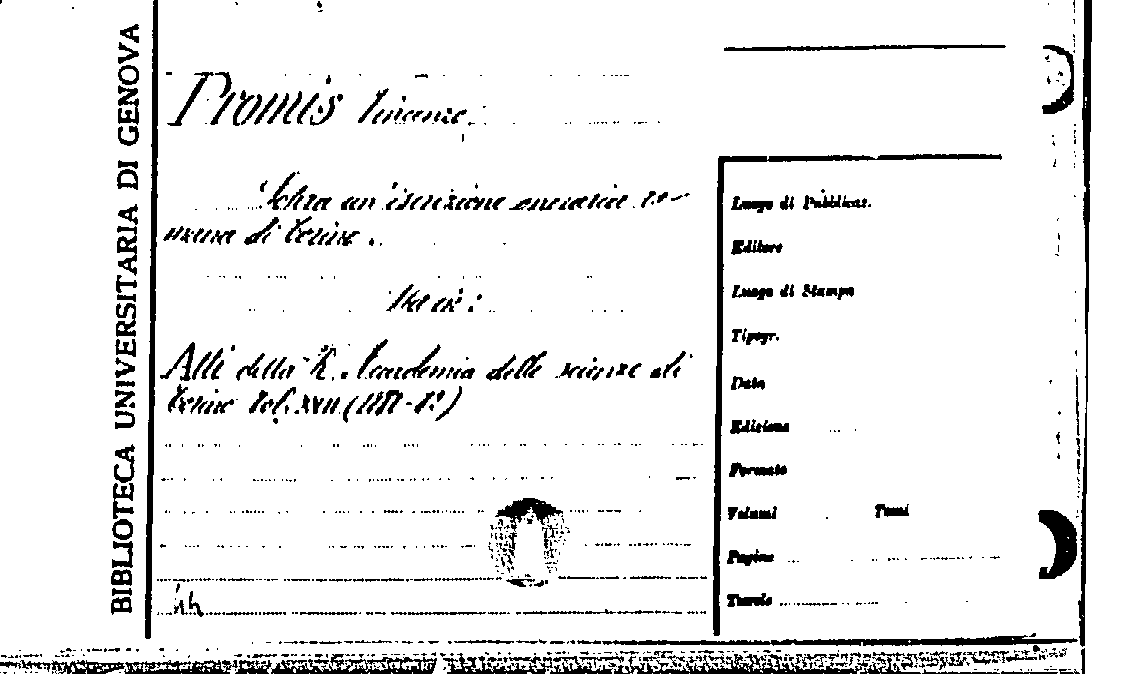 BIBLIOTECA UNIVERSITARIA DI GENOVA
Promis Vincenzo
Sopra un'iscrizione onoraria ro-
mana di Torino.
Sta in:
Atti della R. Accademia delle scienze di
Torino Vol. XVII
Luogo di Pubblicaz.
Editore
Luogo di Stampa
Tipogr.
Data
Edizione
Formato
Volumi Tomi
Pagine